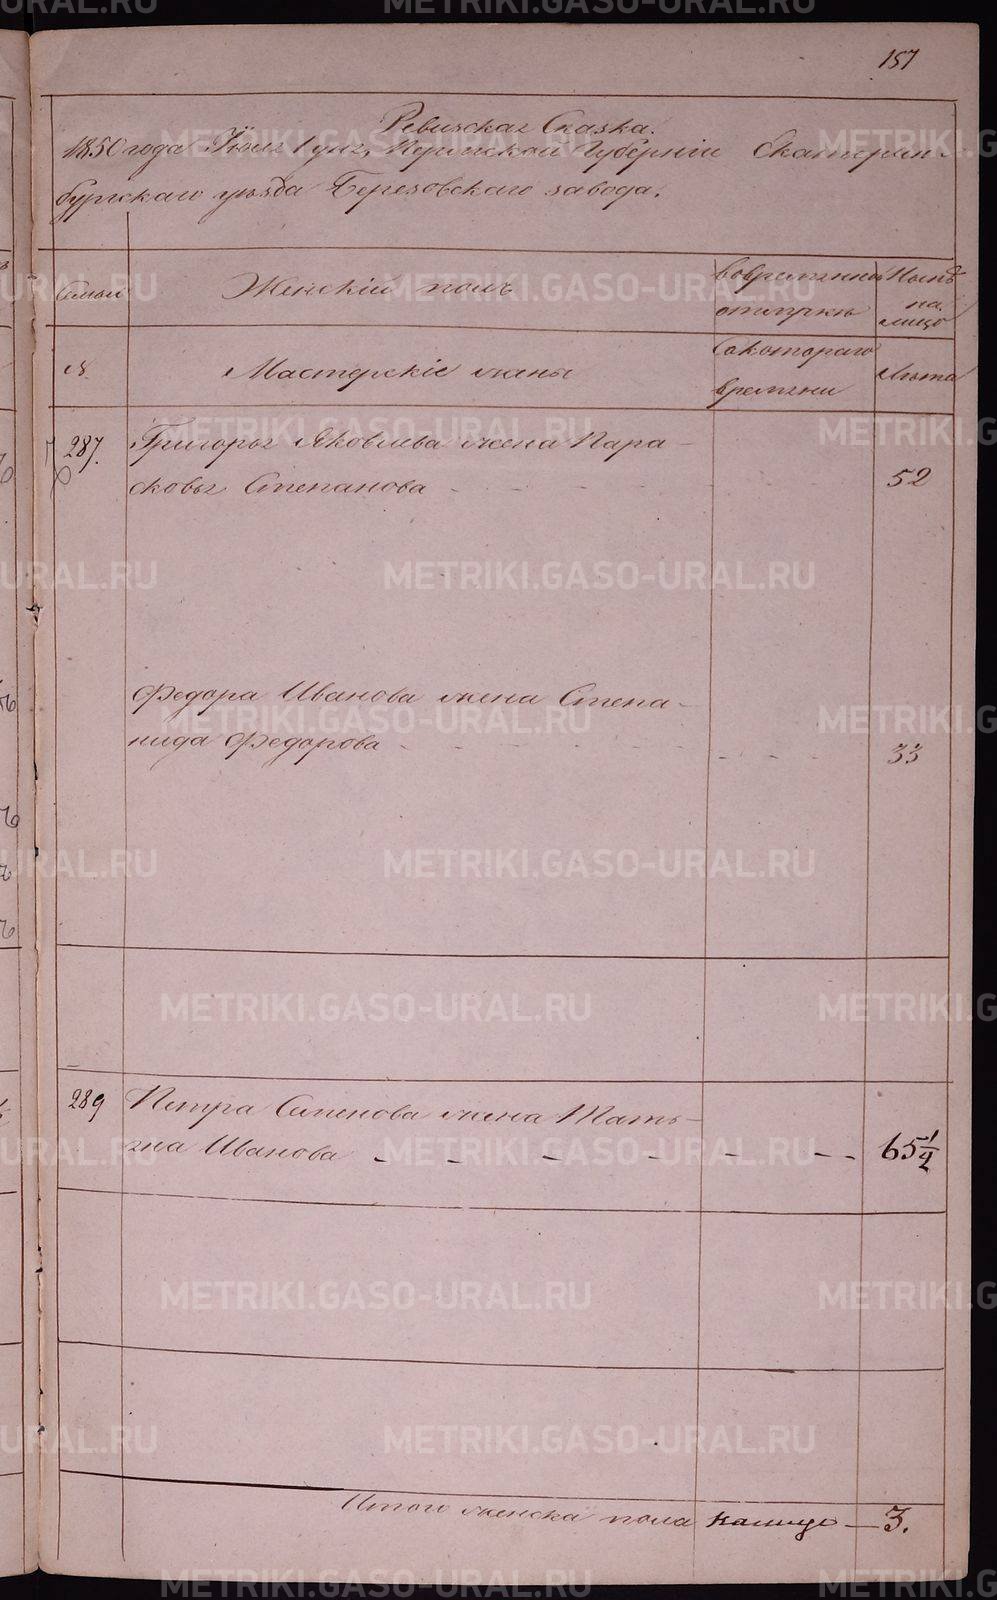 157
Ревижская Сказка.
1850 года Іюля 1 дня, Пермской Губерніи Екатерин-
бургскаго уѣзда Березовскаго завода.
Семьи
Женскій полъ
Вовременной
отлучкѣ
Нынѣ
на
лицо
№
Мастерскіе жены
Съкотораго
времяни
Лѣта
287.
Григорья Яковлева жена Пара-
сковья Степанова - - - -
52
Федора Иванова жена Степа-
нида Федорова - - - - - -
33
289
Петра Семенова жена Тать-
яна Иванова - - - - - - - -
65 1/2
Итого женска пола налицо — 3.
METRIKI.GASO-URAL.RU